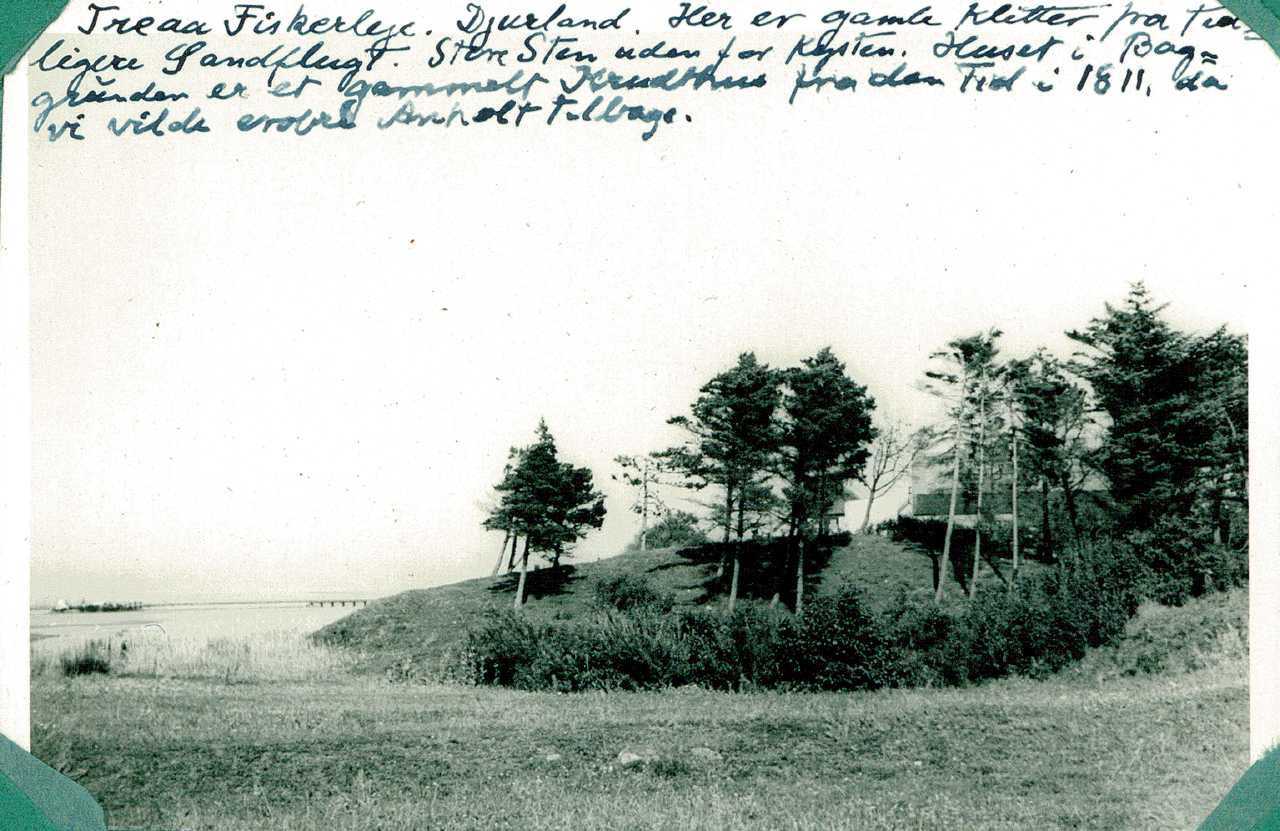 Treaa Fiskerleje. Djursland. Her er gamle Klitter fra Tid=
ligere Sandflugt. Store Sten uden for Kysten. Huset i Bag=
grunden er et gammelt Krudthus fra den Tid i 1811, da
vi vilde erobre Anholt tilbage.